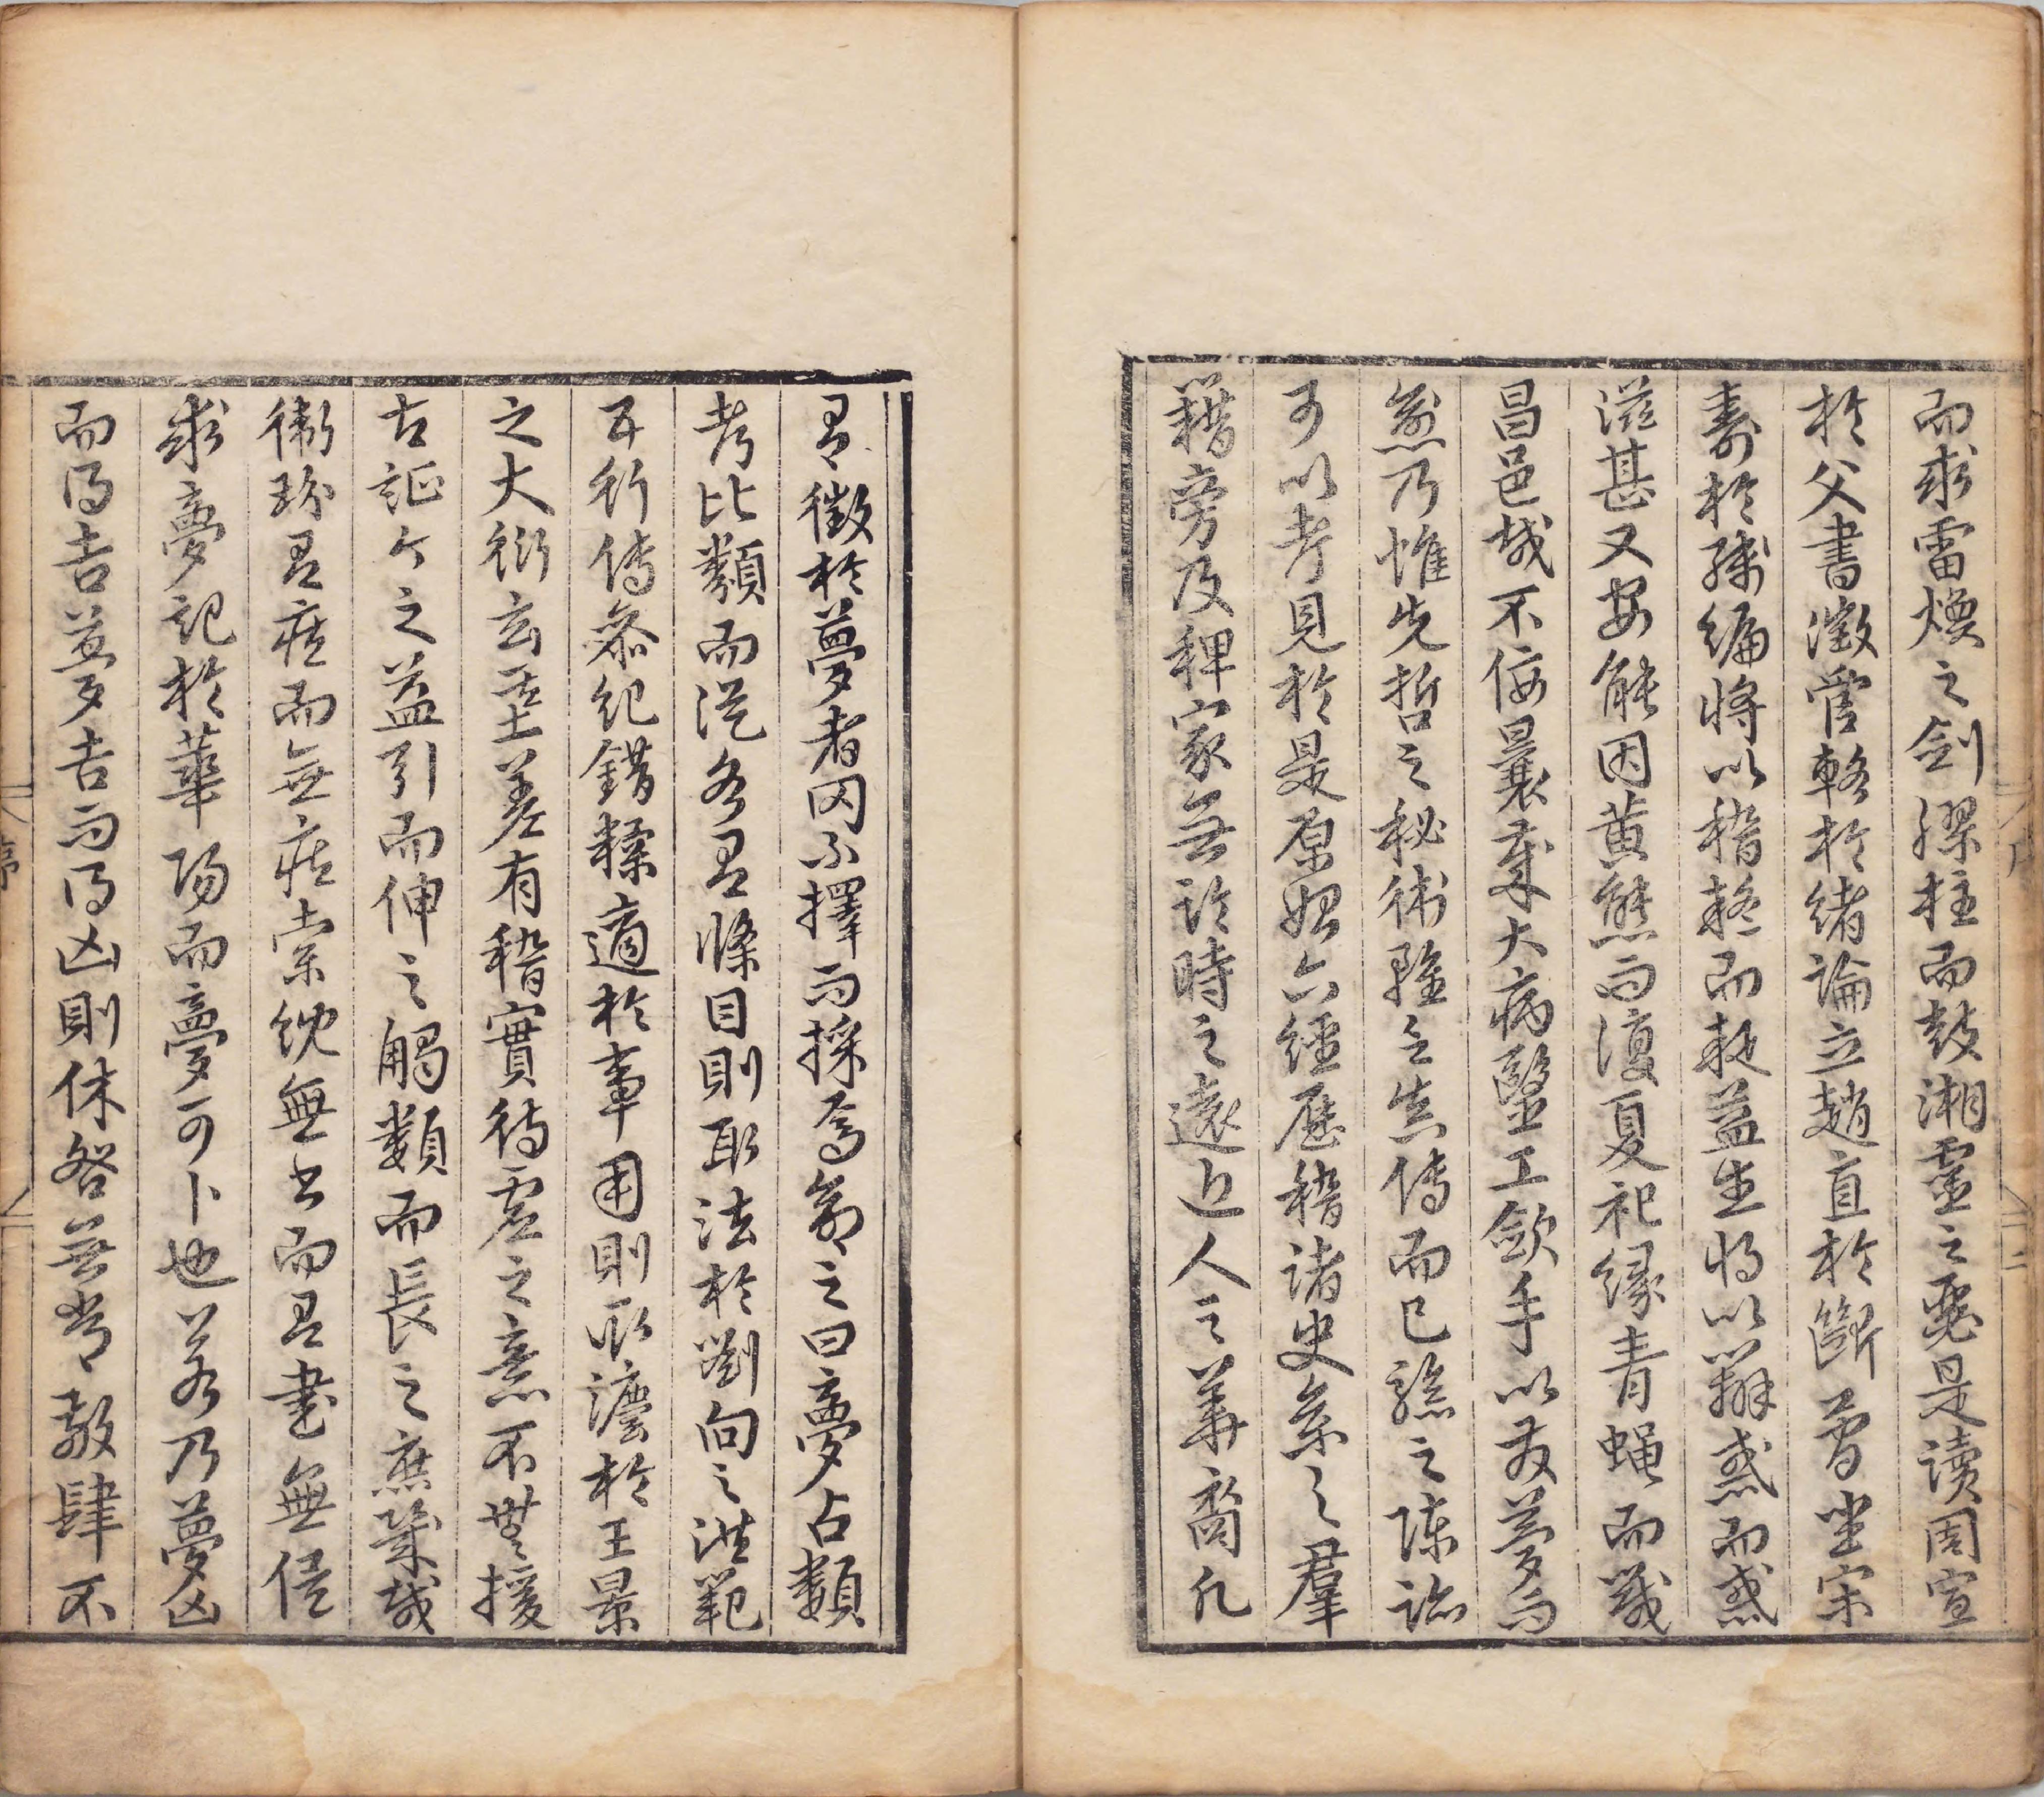 而求雷煥之劍膠柱而鼓湘靈之瑟是讀周宣
於父書徵管輅於緒論立趙直於斷葛坐宋
壽於殘編將以稽疑而疑益生將以辯惑而惑
滋甚又安能因黃熊而復夏祀緣青蠅而戮
昌邑哉不佞曩棄大病醫工歛手以友夢而
愈乃惟先哲之秘術雖亡失傳而已驗之陳跡
可以考見於是原始六經歷稽諸史系之羣
籍旁及稗家無論時之遠近人之華裔凡
有徵於夢者罔不擇而採焉命之曰夢占類
考比類而從各有條目則取法於劉向之洪範
五行傳參紀錯糅適於事用則取灋於王景
之大衍玄基差有稽實待虛之意不無援
古証今之益引而伸之觸類而長之庶幾哉
衛玠有疾而無疾索紞無書而有書無徒
求夢記於華陽而夢可卜也若乃夢凶
而得吉夢吉而得凶則休咎無常敬肆不
序
二